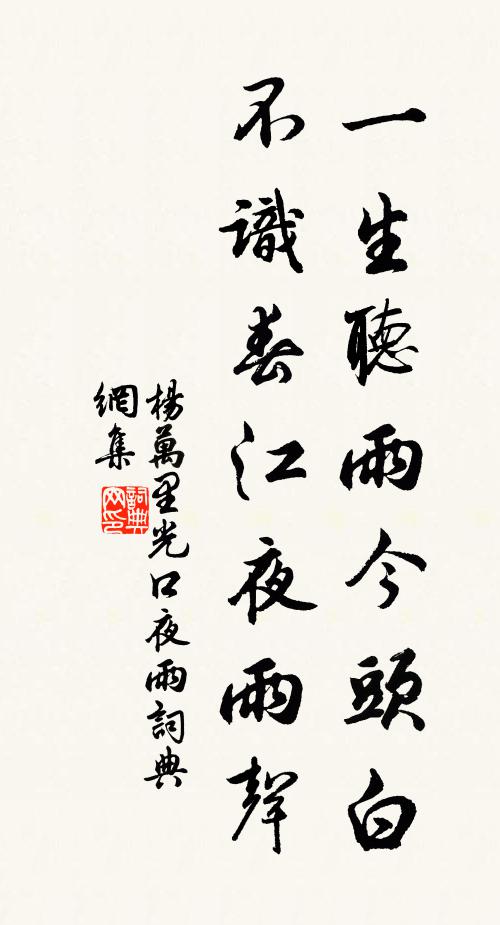 一生聽雨今頭白
不識春江夜雨聲
楊萬里光口夜雨詞典
網集
詞典
网印